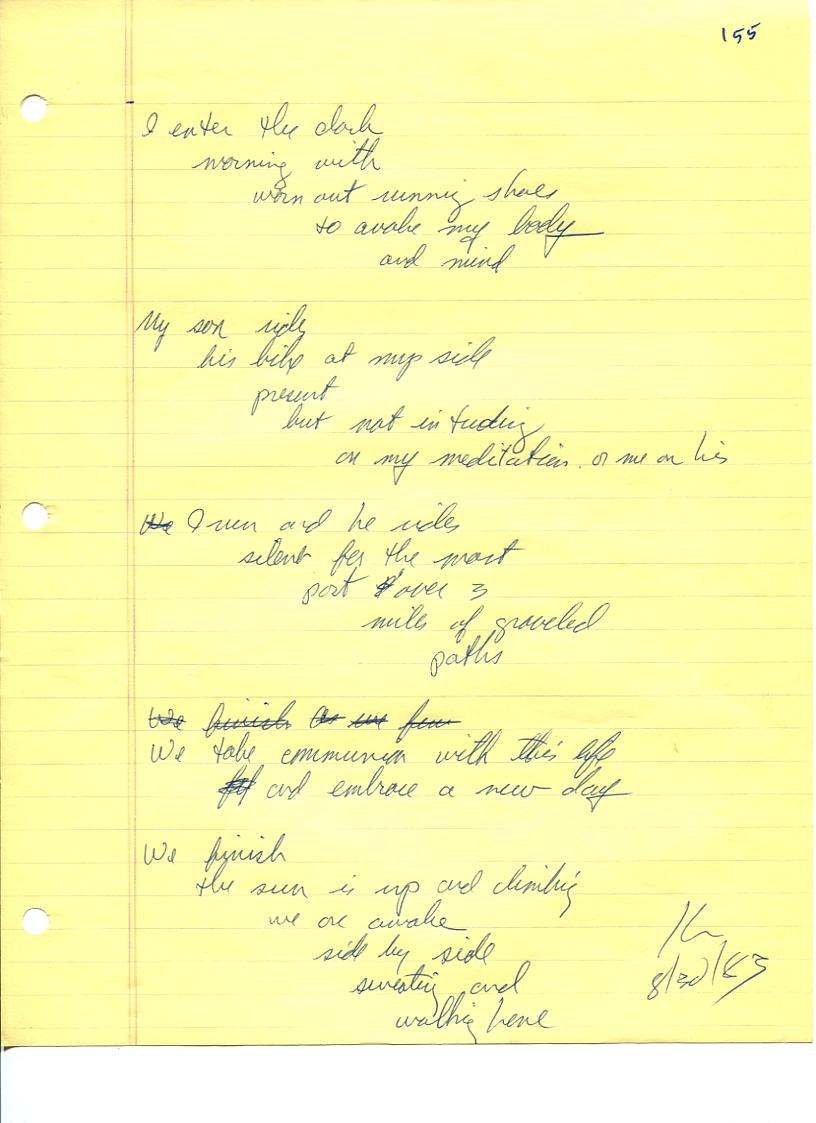 155
I enter the dark
morning with
worn out running shoes
to awake my body
and mind
My son rides
his bike at my side
present
but not intruding
on my meditation. or me on his
We I run and he rides
silent for the most
part over 3
miles of graveled
paths
We finish as we
We take communion with this life
and embrace a new day
We finish
the sun is up and climbing
we are awake
side by side
sweating and
walking home
8/30/83